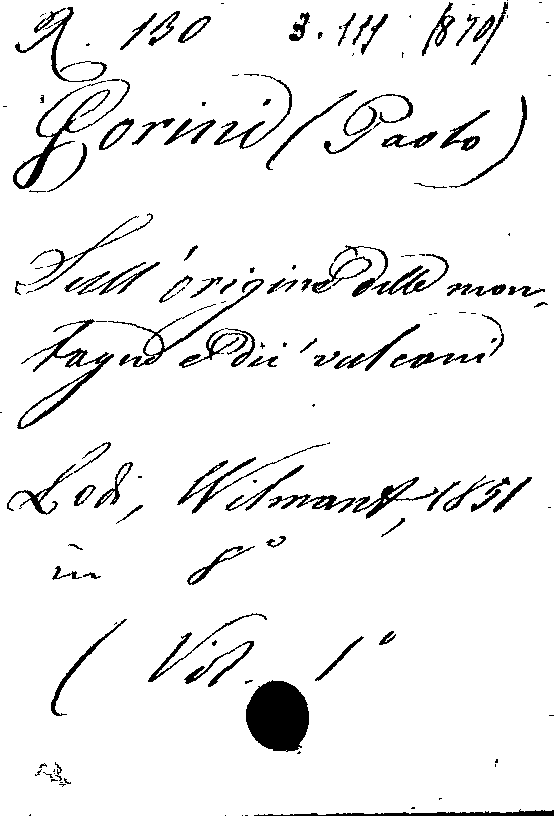 R. 130 3.111 (870)
Gorini (Paolo)
Sull'origine delle mon-
tagne e dei vulcani
Lodi, Wilmant, 1851
in 8°
( Vol. 1°